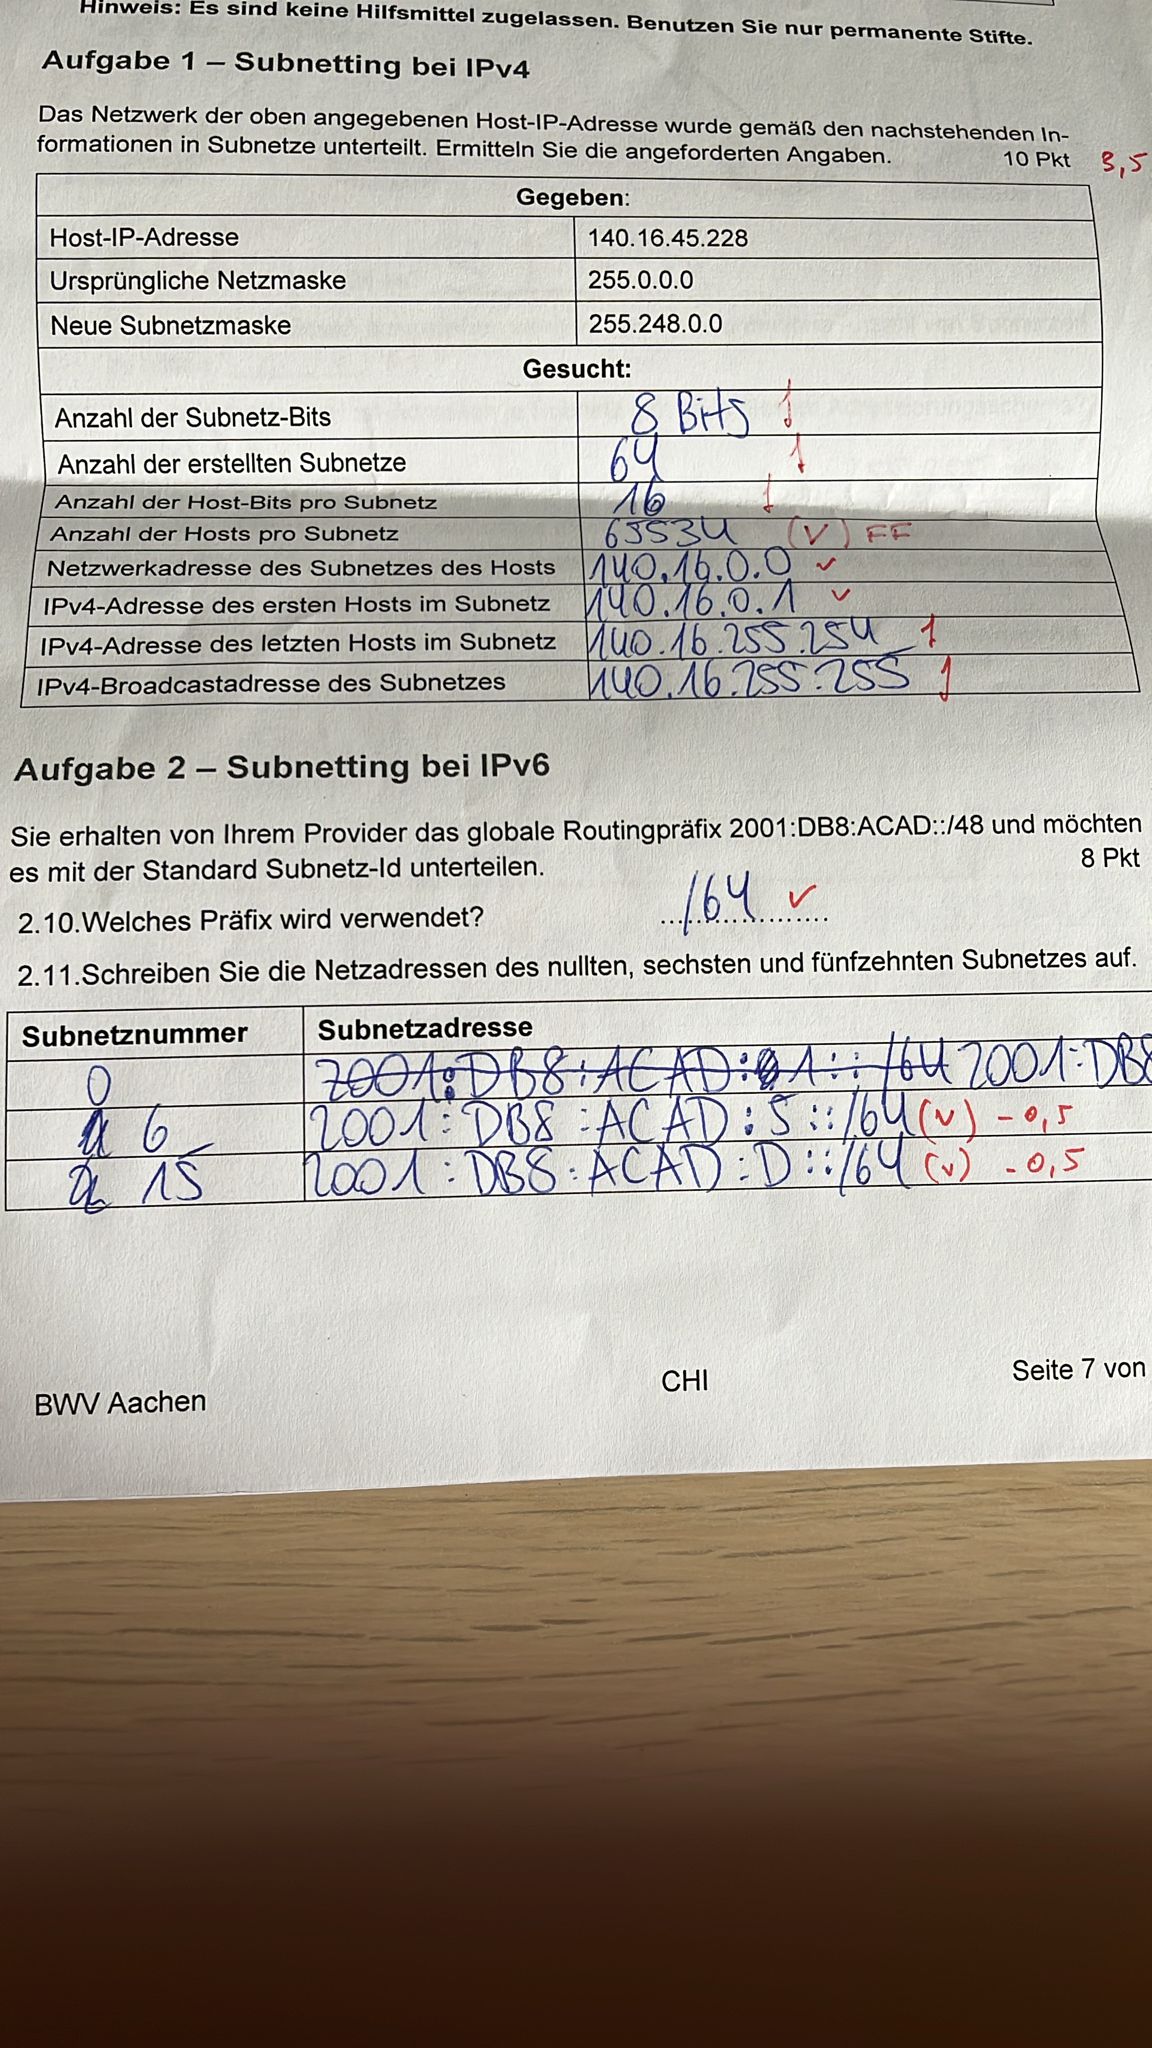 Hinweis: Es sind keine Hilfsmittel zugelassen. Benutzen Sie nur permanente Stifte.
Aufgabe 1 – Subnetting bei IPv4
Das Netzwerk der oben angegebenen Host-IP-Adresse wurde gemäß den nachstehenden In-
formationen in Subnetze unterteilt. Ermitteln Sie die angeforderten Angaben. 10 Pkt 3,5
Gegeben:
Host-IP-Adresse 140.16.45.228
Ursprüngliche Netzmaske 255.0.0.0
Neue Subnetzmaske 255.248.0.0
Gesucht:
Anzahl der Subnetz-Bits 8 Bits
Anzahl der erstellten Subnetze 64
Anzahl der Host-Bits pro Subnetz 16
Anzahl der Hosts pro Subnetz 65534 (✓) FF
Netzwerkadresse des Subnetzes des Hosts 140.16.0.0 ✓
IPv4-Adresse des ersten Hosts im Subnetz 140.16.0.1 ✓
IPv4-Adresse des letzten Hosts im Subnetz 140.16.255.254
IPv4-Broadcastadresse des Subnetzes 140.16.255.255
Aufgabe 2 – Subnetting bei IPv6
Sie erhalten von Ihrem Provider das globale Routingpräfix 2001:DB8:ACAD::/48 und möchten
es mit der Standard Subnetz-Id unterteilen. 8 Pkt
2.10.Welches Präfix wird verwendet? /64 ✓
2.11.Schreiben Sie die Netzadressen des nullten, sechsten und fünfzehnten Subnetzes auf.
Subnetznummer Subnetzadresse
0 2001:DB8:ACAD:1::/64 2001:DB8
6 2001:DB8:ACAD:5::/64 (✓) -0,5
15 2001:DB8:ACAD:D::/64 (✓) -0,5
BWV Aachen CHI Seite 7 von